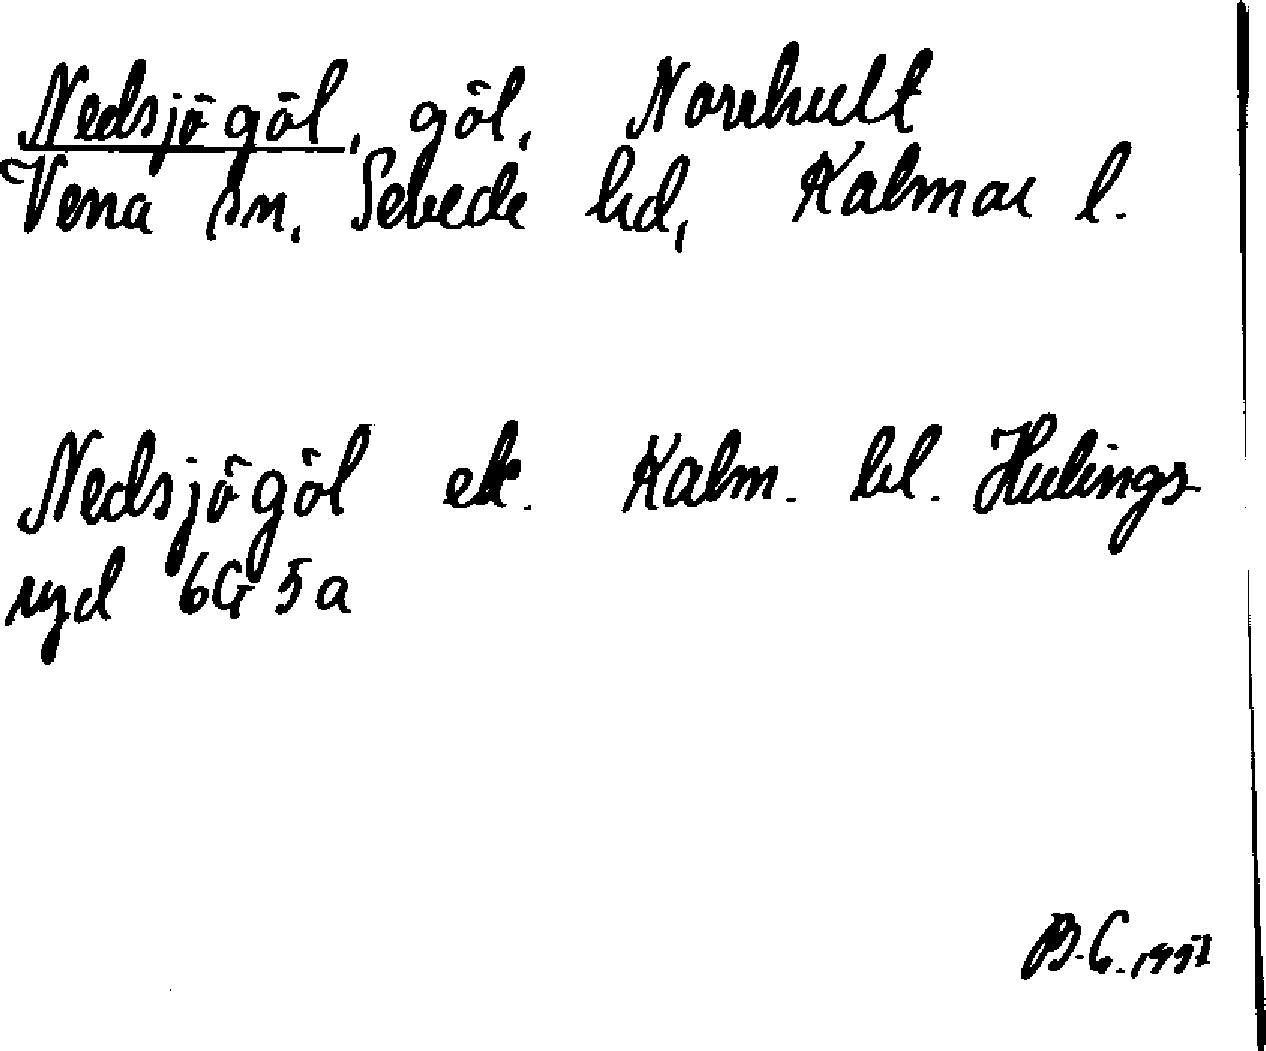 Nedsjögöl, göl, Norrhult
Vena sn, Sevede hd, Kalmar l.
Nedsjögöl ek. Kalm. bl. Hulings
ryd 6G 5a
B.G.